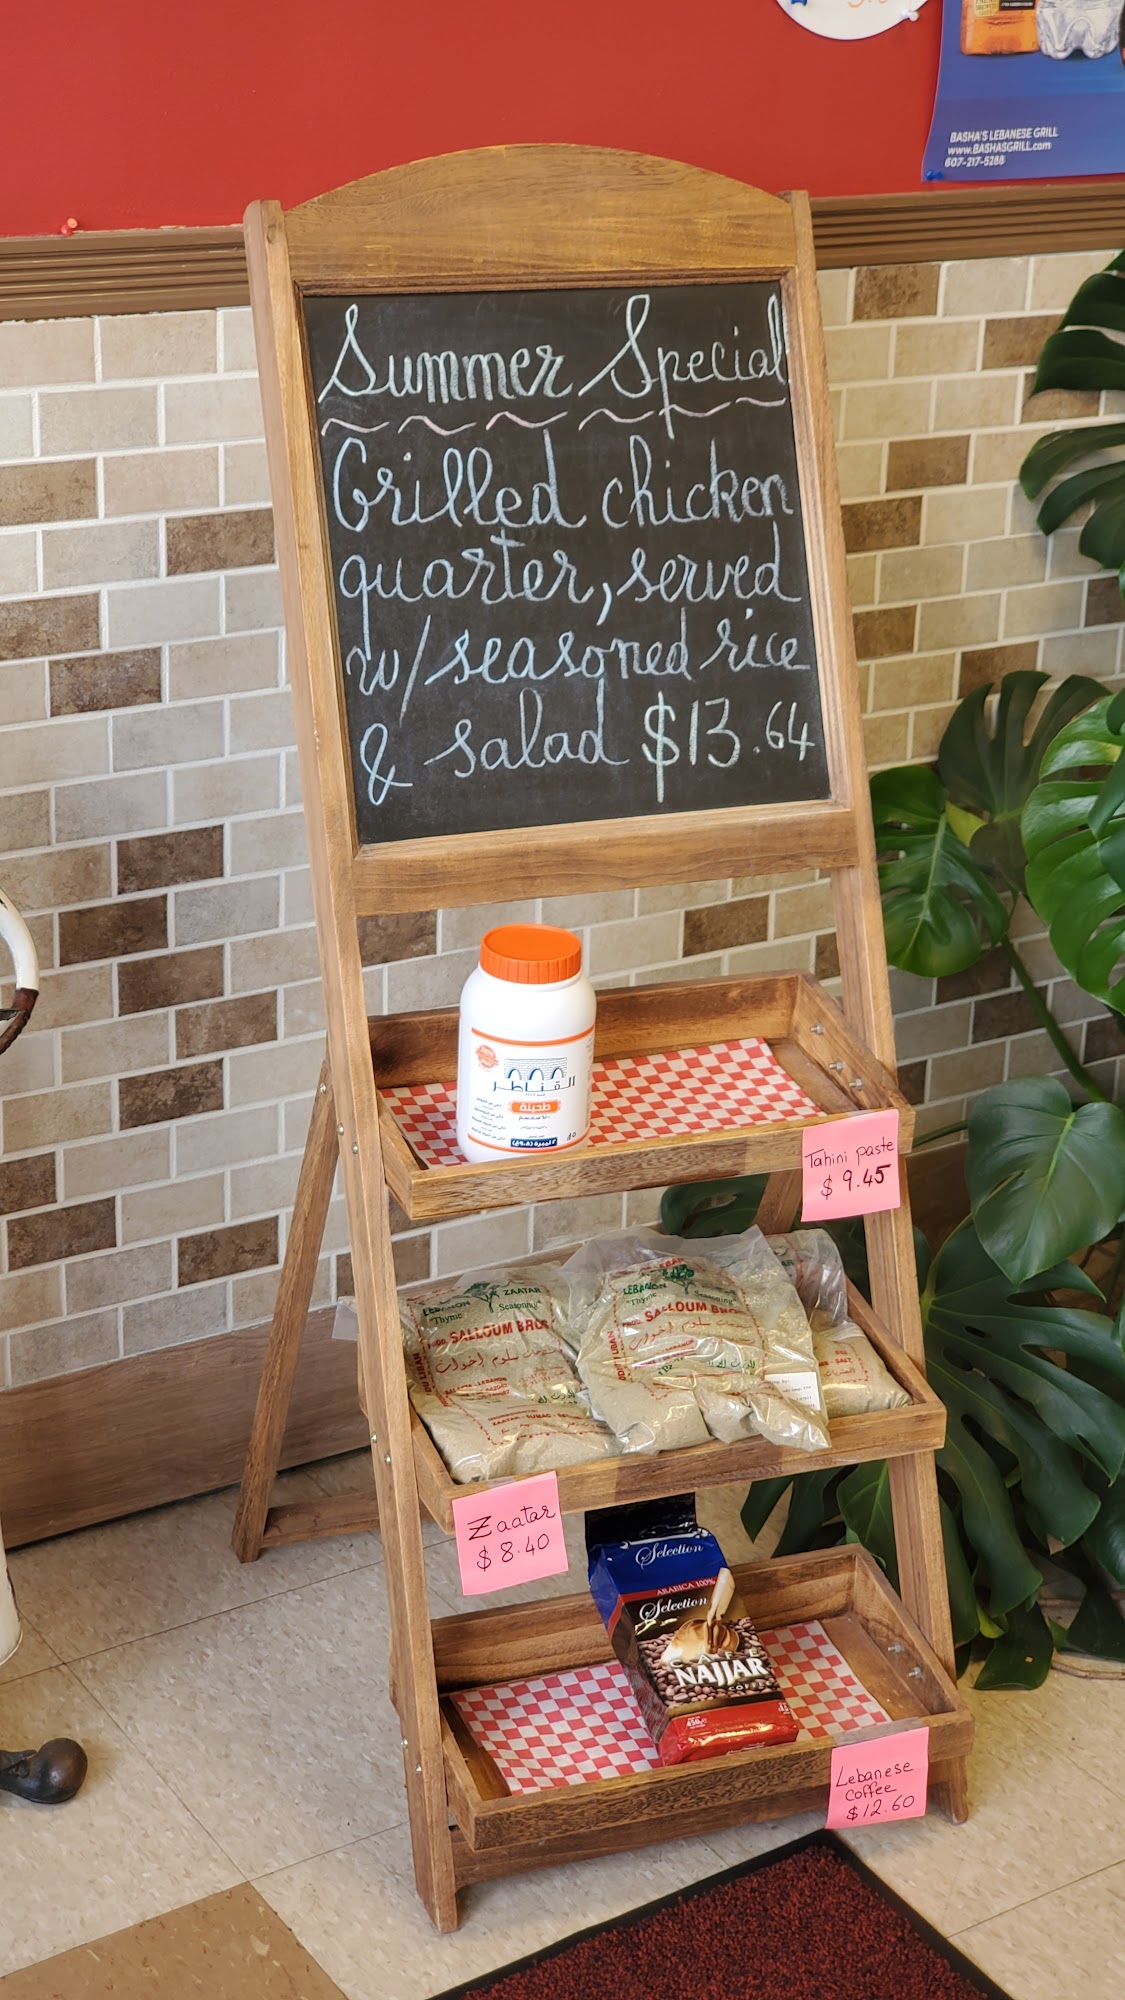 BASHA'S LEBANESE GRILL
www.BASHASGRILL.com
607-217-5288
Summer Special
Grilled chicken
quarter, served
w/ seasoned rice
& salad $13.64
القناطر
طحينة
Tahini paste
$ 9.45
LEBANON ZAATAR
"Thyme Seasoning"
SALLOUM BROS
LEBANON
"Thyme Seasoning"
SALLOUM BROS
سلوم اخوان
Zaatar
$ 8.40
Selection
ARABICA 100%
Selection
CAFÉ
NAJJAR
COFFEE
450g
Lebanese
coffee
$12.60